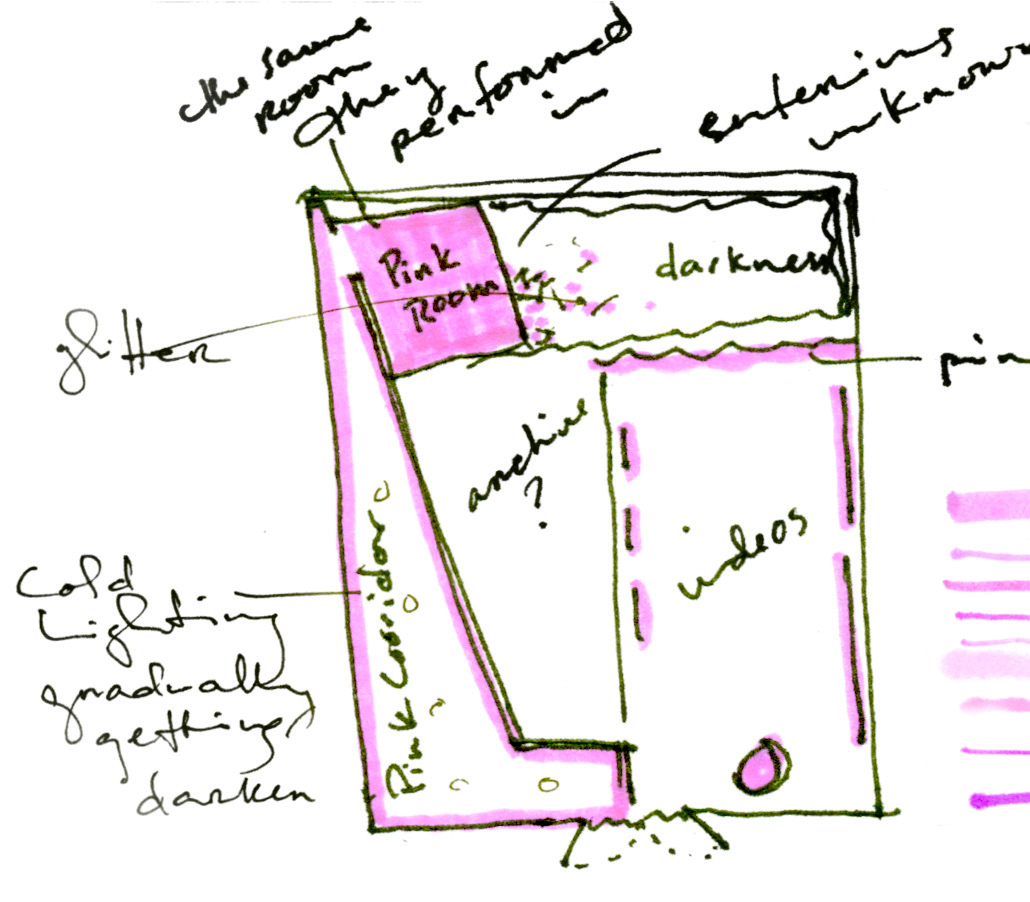 the same
room
they
performed
in
entering
unknown
Pink
Room
darkness
glitter
pin
archive
?
videos
Pink Corridor
Cold
Lighting
gradually
getting
darker